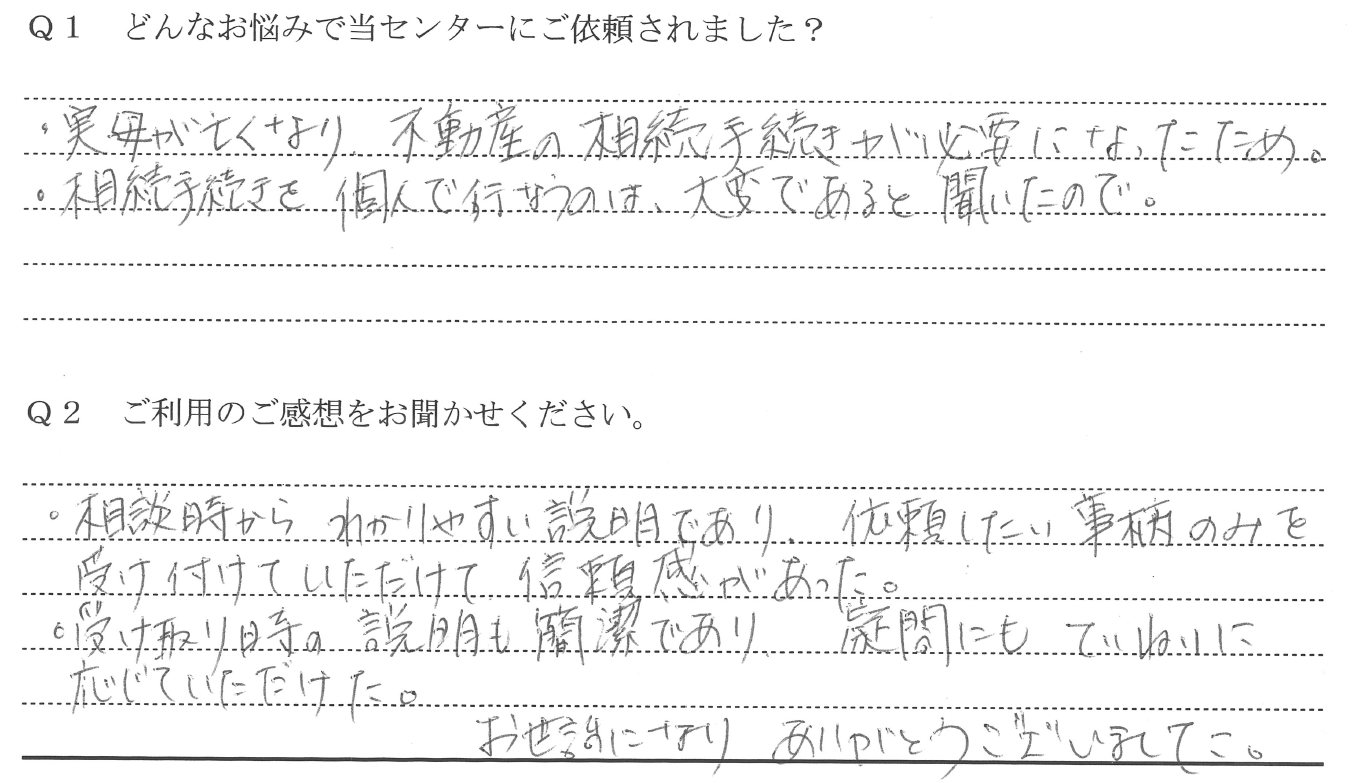 Ｑ１　どんなお悩みで当センターにご依頼されました？
・実母が亡くなり、不動産の相続手続きが必要になったため。
・相続手続きを個人で行なうのは、大変であると聞いたので。
Ｑ２　ご利用のご感想をお聞かせください。
・相談時からわかりやすい説明であり、依頼したい事柄のみを
受け付けていただけて信頼感があった。
・受け取り時の説明も簡潔であり、疑問にもていねいに
応じていただけた。
お世話になりありがとうございました。